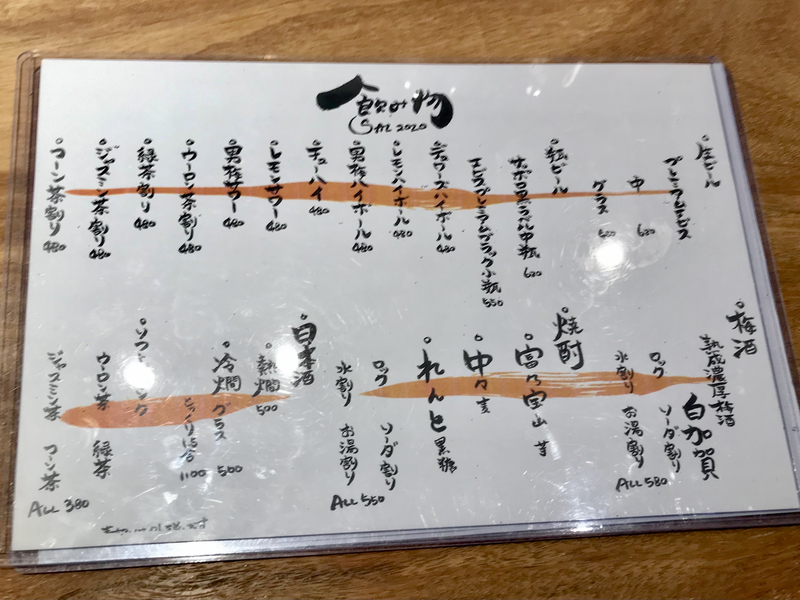 飲み物
SAL 2020
○生ビール
プレミアムヱビス
中 680
グラス
○瓶ビール
サッポロ黒ラベル中瓶 680
ヱビスプレミアムブラック小瓶 550
○デュワーズハイボール 480
○レモンハイボール 480
○男梅ハイボール 480
○チューハイ 480
○レモンサワー 480
○男梅サワー 480
○ウーロン茶割り 480
○緑茶割り 480
○ジャスミン茶割り 480
○コーン茶割り 480
○梅酒
熟成濃厚梅酒
白加賀
ロック ソーダ割り
水割り お湯割り
ALL 580
○焼酎
○富乃宝山 芋
○中々 麦
○れんと 黒糖
ロック ソーダ割り
水割り お湯割り
ALL 550
○日本酒
○熱燗 500
○冷燗 グラス 500
とっくり1.5合 1100
○ソフトドリンク
ウーロン茶 緑茶
ジャスミン茶 コーン茶
ALL 380